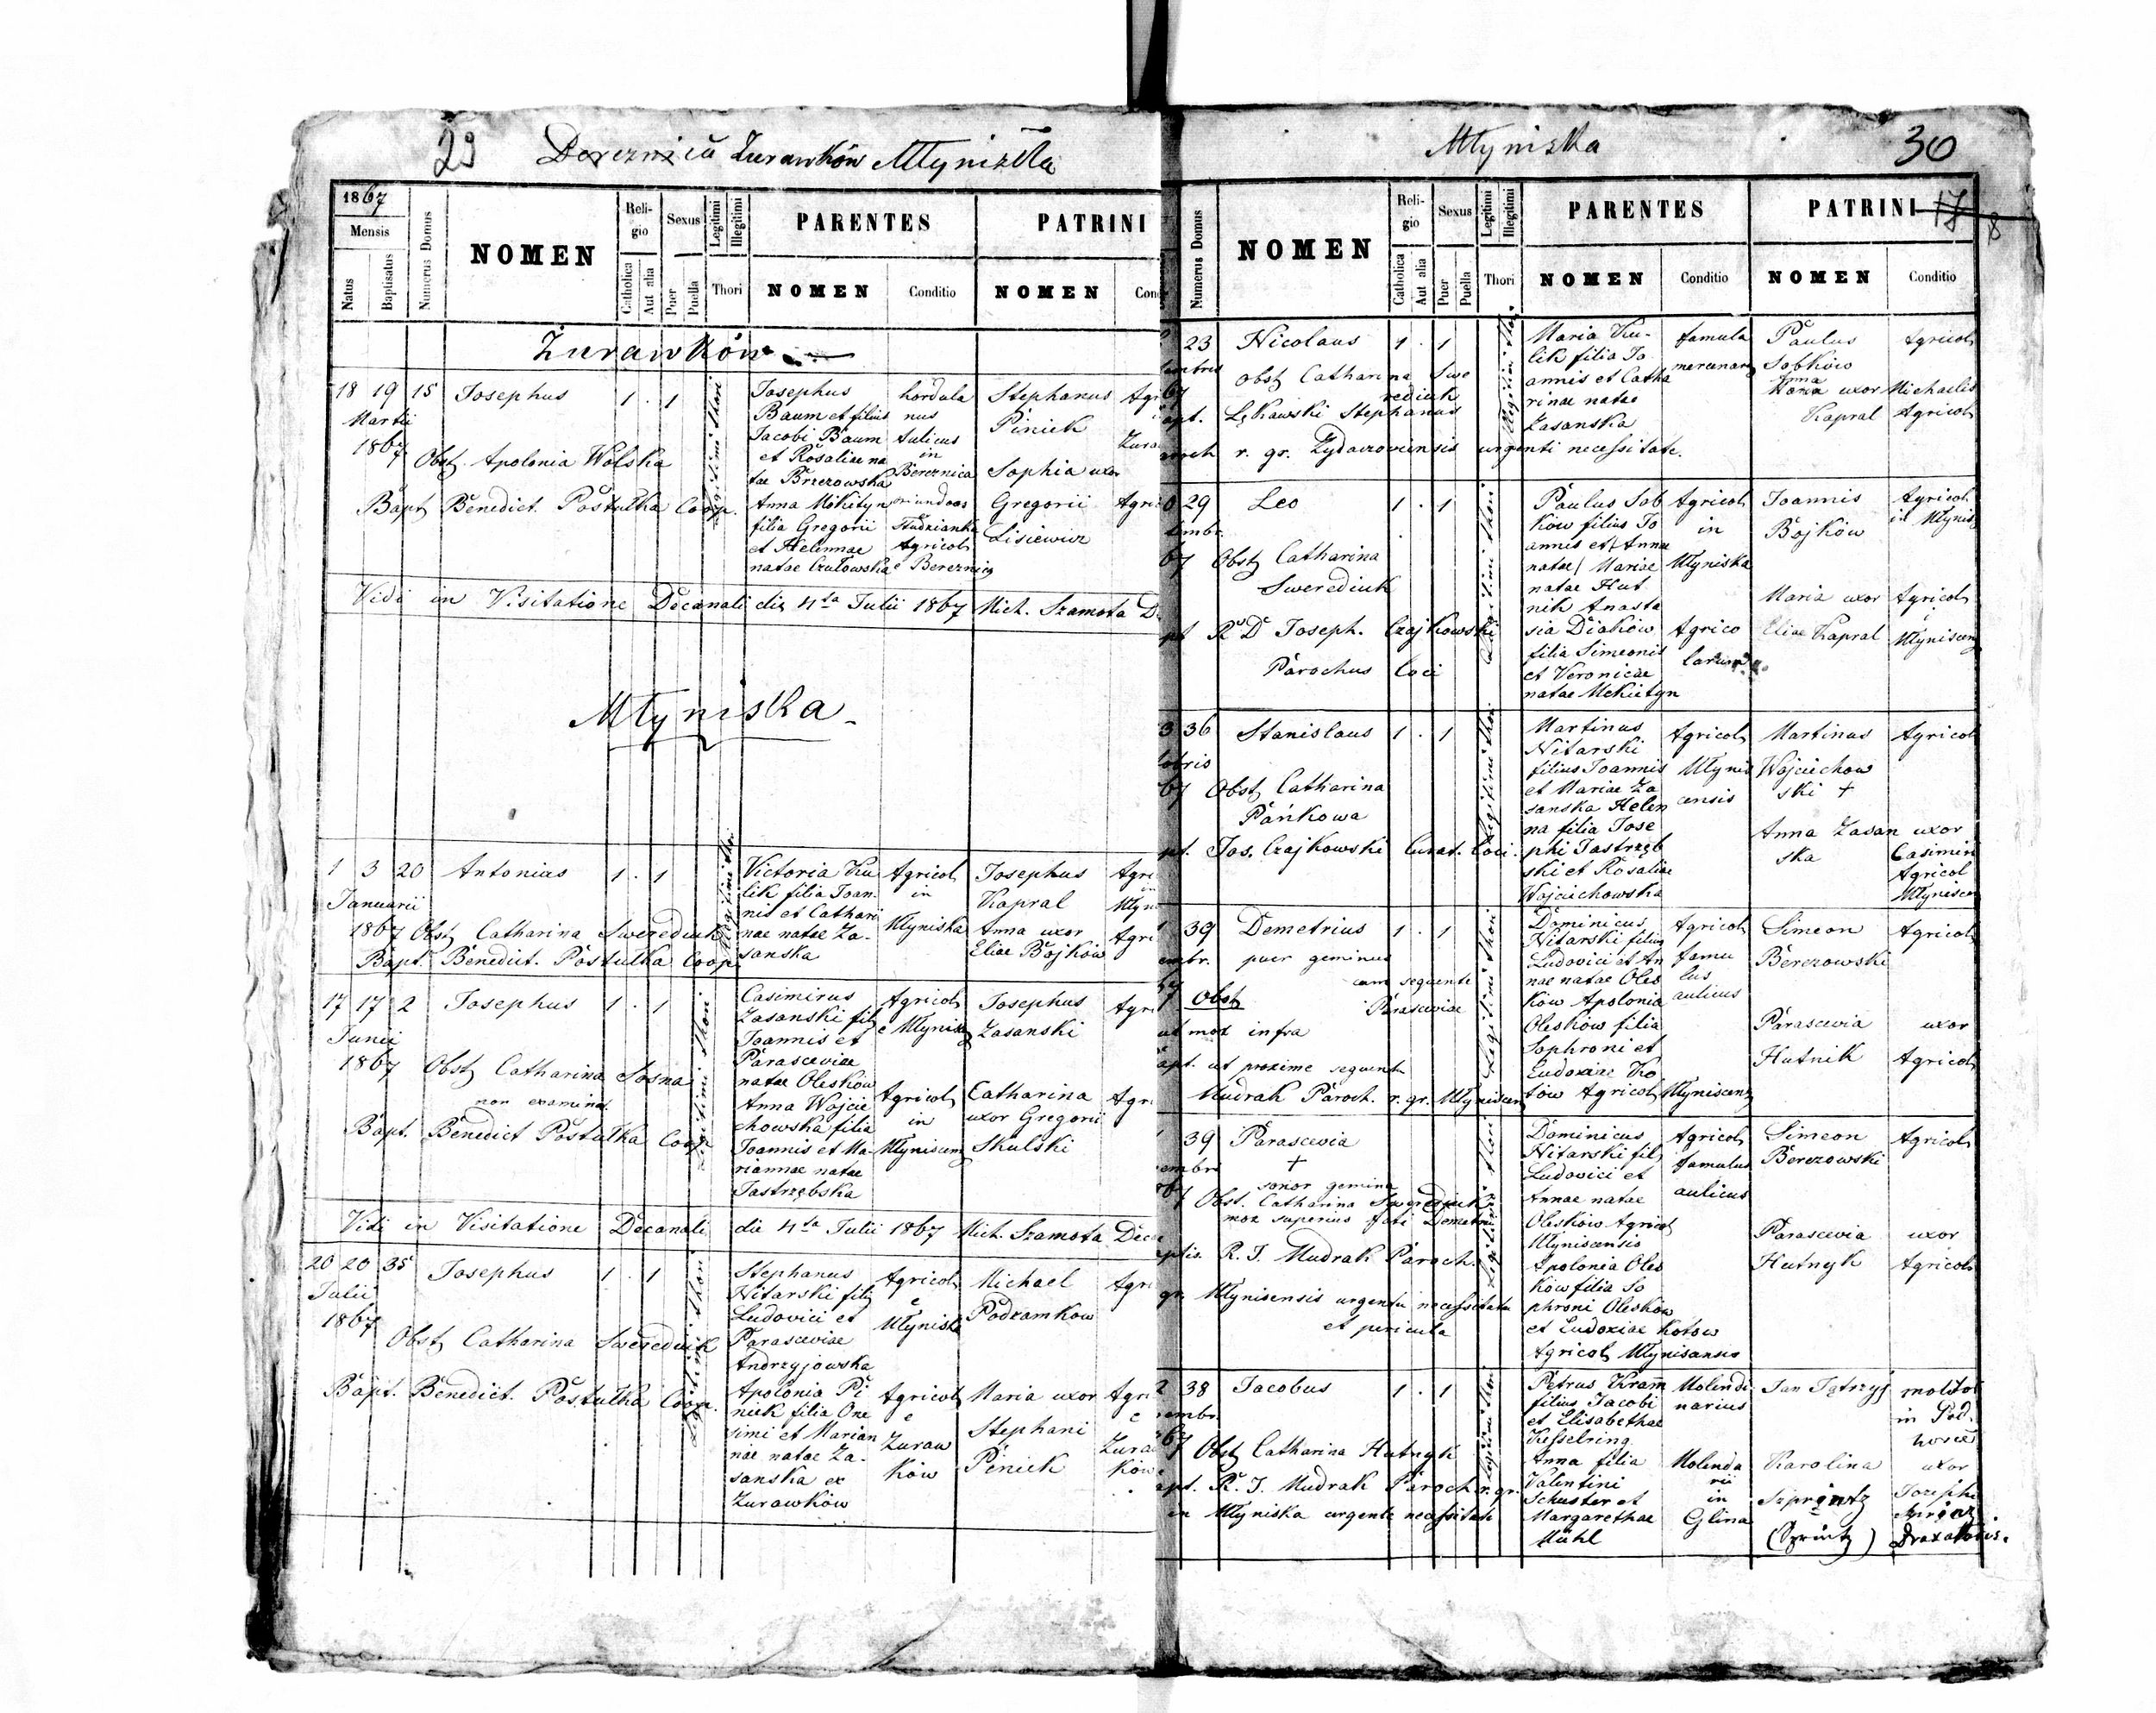 29 Bereznica Żurawków Młyniska
1867
Mensis
Natus
Baptisatus
Numerus Domus
NOMEN
Religio
Catholica
Aut alia
Sexus
Puer
Puella
Legitimi
Illegitimi
Thori
PARENTES
NOMEN
Conditio
PATRINI
NOMEN
Żurawków
18 19 15 Josephus 1 . 1
Martii
1867
Obst. Apolonia Wolska
Bapt Benedict. Postułka Coop.
Legitimi thori
Josephus
Baum et filius
Jacobi Baum
et Rosaliae na
tae Brzezowska
Anna Mikityn
filia Gregorii
et Helennae
natae Czułowska
hordula
nus
aulicus
in
Bereznica
oriundus
Agricol
e Bereznica
Stephanus
Piniek
Sophia uxor
Gregorii
Lisiewicz
Vidi in Visitatione Decanali die 4ta Julii 1867 Mich. Szamota
Młyniska
1 3 20 Antonius 1 . 1
Januarii
1867 Obst. Catharina Swerediuk
Bapt. Benedict. Postułka Coop.
Legitimi tho.
Victoria Ku
lik filia Joan
nis et Cathari
nae natae Za-
sanska
Agricol
in
Młyniska
Josephus
Kapral
Anna uxor
Eliae Bojków
17 17 2 Josephus 1 . 1
Junii
1867 Obst. Catharina Sosna
non examinat.
Bapt. Benedict Postułka Coop
Legitimi thori
Casimirus
Zasanski fil
Joannis et
Parasceviae
natae Oleskow
Anna Wojcie
chowska filia
Joannis et Ma-
riannae natae
Jastrzębska
Agricol
e Młyniska
Agricol
in
Młyniscens
Josephus
Zasanski
Catharina
uxor Gregorii
Skulski
Vidi in Visitatione Decanali die 4ta Julii 1867 Mich. Szamota
20 20 35 Josephus 1 . 1
Julii
1867
Obst. Catharina Swerediuk
Bapt. Benedict. Postułka Coop.
Legitimi thori
Stephanus
Nitarski fil
Ludovici et
Parasceviae
Andrzyjowska
Apolonia Pi
niek filia One
simi et Marian
nae natae Za-
sanska ex
Żurawków
Agricol
e
Młyniska
Agricol
e
Żuraw
ków
Michael
Podzamkow
Maria uxor
Stephani
Peniek
Młyniska 30
17 8
Numerus Domus
NOMEN
Religio
Catholica
Aut alia
Sexus
Puer
Puella
Legitimi
Illegitimi
Thori
PARENTES
NOMEN
Conditio
PATRINI
NOMEN
Conditio
23 Nicolaus 1 . 1
obst. Catharina Swe
rediuk
Łękawski Stephanus
r. gr. Zydaczoviensis urgenti necessitate.
Maria Ku-
lik filia Jo
annis et Catha
rinae natae
Zasanska
famula
mercenar
Paulus
Sobków
Anna
Maria uxor Michaelis
Kapral Agricol
Agricol
29 Leo 1 . 1
Obst Catharina
Swerediuk
Rs Ds Joseph. Czajkowski
Parochus Loci
Legitimi thori
Paulus Sob
kow filius Jo
annis et (Annae
natae) Mariae
natae Hut
nik Anasta
sia Diaków
filia Simeonis
et Veronicae
natae Mekietyn
Agricol
in
Młyniska
Agrico
larum
Joannis
Bojków
Maria uxor
Eliae Kapral
Agricol.
in Młynis
Agricol
Młyniscens
36 Stanislaus 1 . 1
Obst. Catharina
Pańkowa
Jos. Czajkowski Curat. Loci.
Legitimi thori
Martinus
Nitarski
filius Joannis
et Mariae Za
sanska Helen
na filia Jose
phi Jastrzęb
ski et Rosaliae
Wojciechowska
Agricol
Młynis
censis
Martinus
Wojciechow
ski +
Anna Zasan
ska
Agricol
uxor
Casimiri
Agricol
Młyniscen
39 Demetrius 1 . 1
puer geminus
cum sequente
Obst Parasceviae
ut mox infra
ut proxime sequent
Mudrak Paroch. r. gr. Młyniscens
Legitimi thori
Dominicus
Nitarski filius
Ludovici et An
nae natae Oles
ków Apolonia
Oleskow filia
Sophroni et
Eudoxiae Ko
tow Agricol Młyniscens
Agricol
famu
lus
aulicus
Simeon
Berezowski
Parascevia
Hutnik
Agricol
uxor
Agricol
39 Parascevia
+
soror gemina
Obst. Catharina Swerediuk
mox superius fati Demetrii
R. J. Mudrak Paroch.
gr. Młynisensis urgentu necessitatu
et pericula
Legitimi thori
Dominicus
Nitarski fil
Ludovici et
Annae natae
Oleskow Agricol
Młyniscensis
Apolonia Oles
kow filia So
phroni Oleskow
et Eudoxiae Kotow
Agricol Młynisansis
Agricol
famulus
aulicus
Simeon
Berezowski
Parascevia
Hutnyk
Agricol
uxor
Agricol
38 Jacobus 1 . 1
Obst Catharina Hutnyk
R. J. Mudrak Paroch. r. gr.
in Młyniska urgente necessitate
Legitimi thori
Petrus Kram̄
filius Jacobi
et Elisabethae
Kesselring
Anna filia
Valentini
Schuster et
Margarethae
Mühl
Molendi
narius
Molinda
rii
in
Glina
Karolina
Szprintz
(Sprintz)
molitor
in Pod.
uxor
Josephi